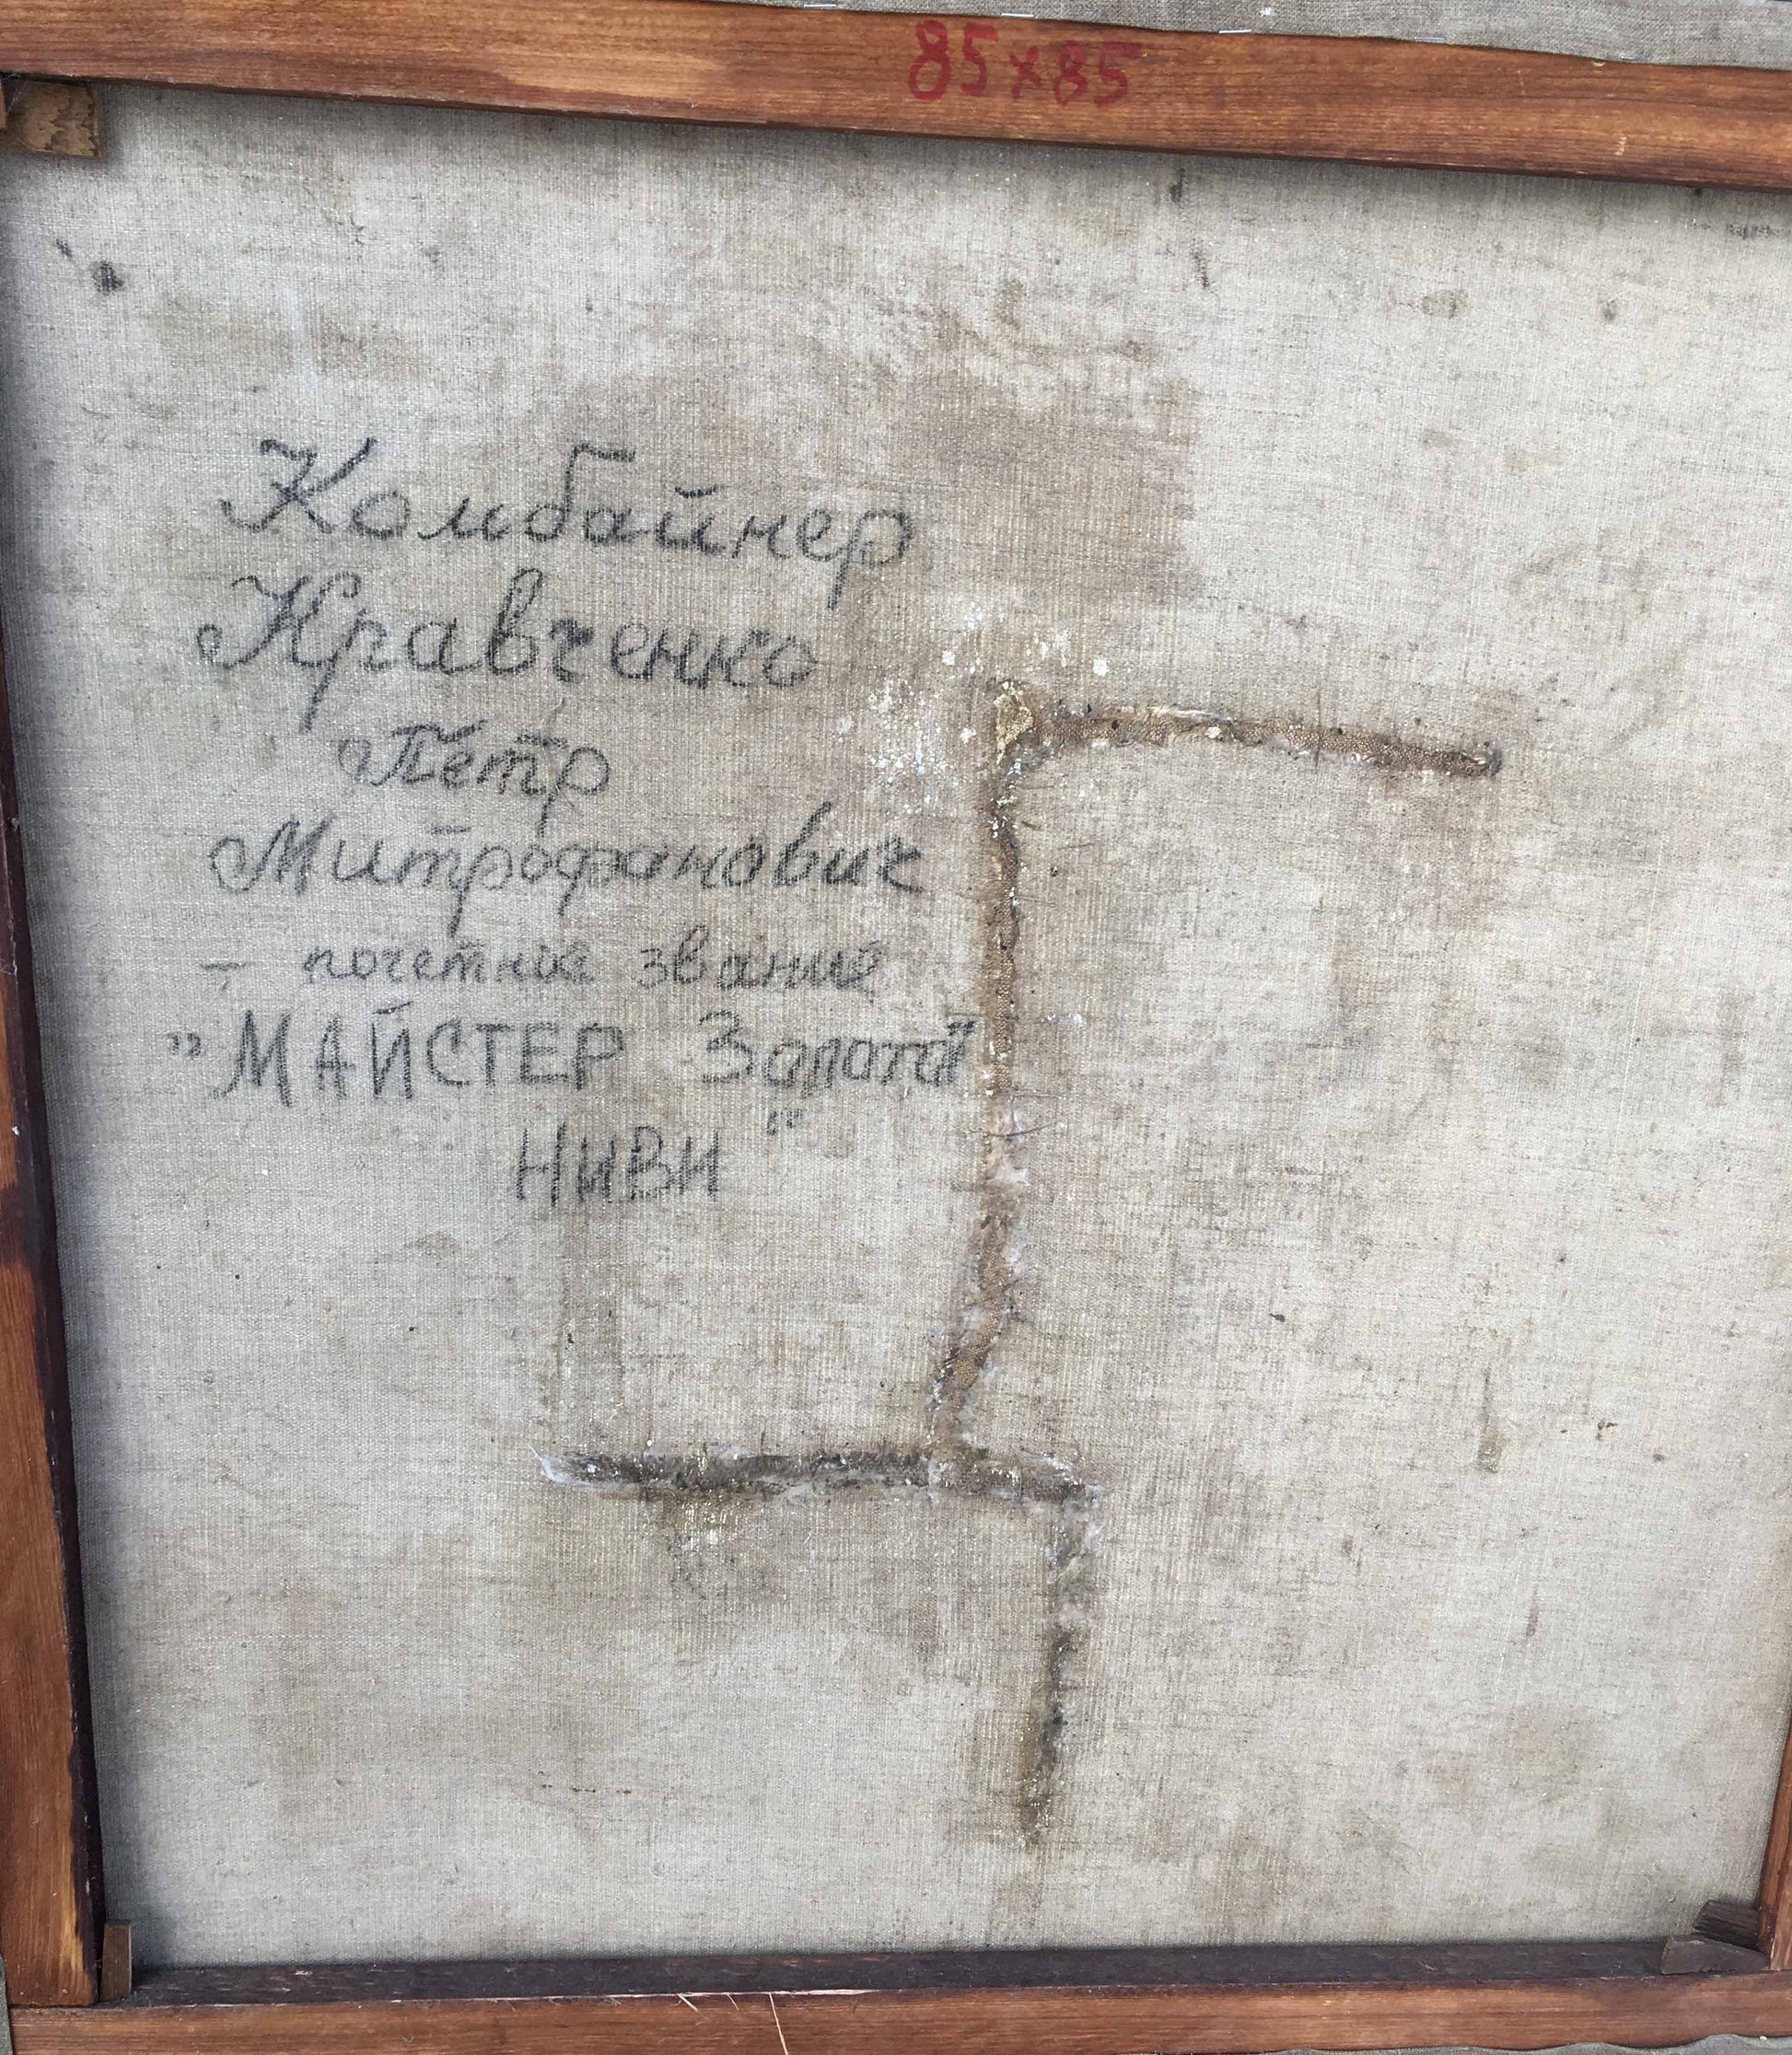 85x85
Комбайнер
Кравченко
Пётр
Митрофанович
- почетное звание
"МАЙСТЕР Золотої
Ниви"